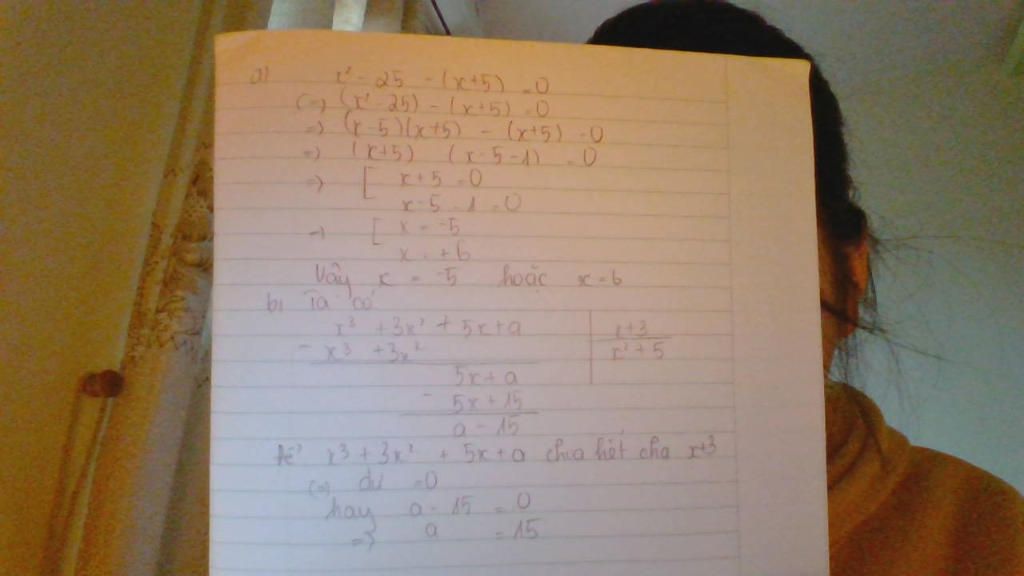 a) x² - 25 - (x+5) = 0
(=) (x² - 25) - (x+5) = 0
=) (x-5)(x+5) - (x+5) = 0
=) (x+5) (x-5-1) = 0
=) [ x+5 = 0
x-5-1 = 0
=) [ x = -5
x = +6
Vậy x = -5 hoặc x = 6
b) Ta có
x³ + 3x² + 5x + a | x+3
- x³ + 3x² | x² + 5
5x + a
- 5x + 15
a - 15
Để x³ + 3x² + 5x + a chia hết cho x+3
(=) dư = 0
hay a - 15 = 0
=) a = 15